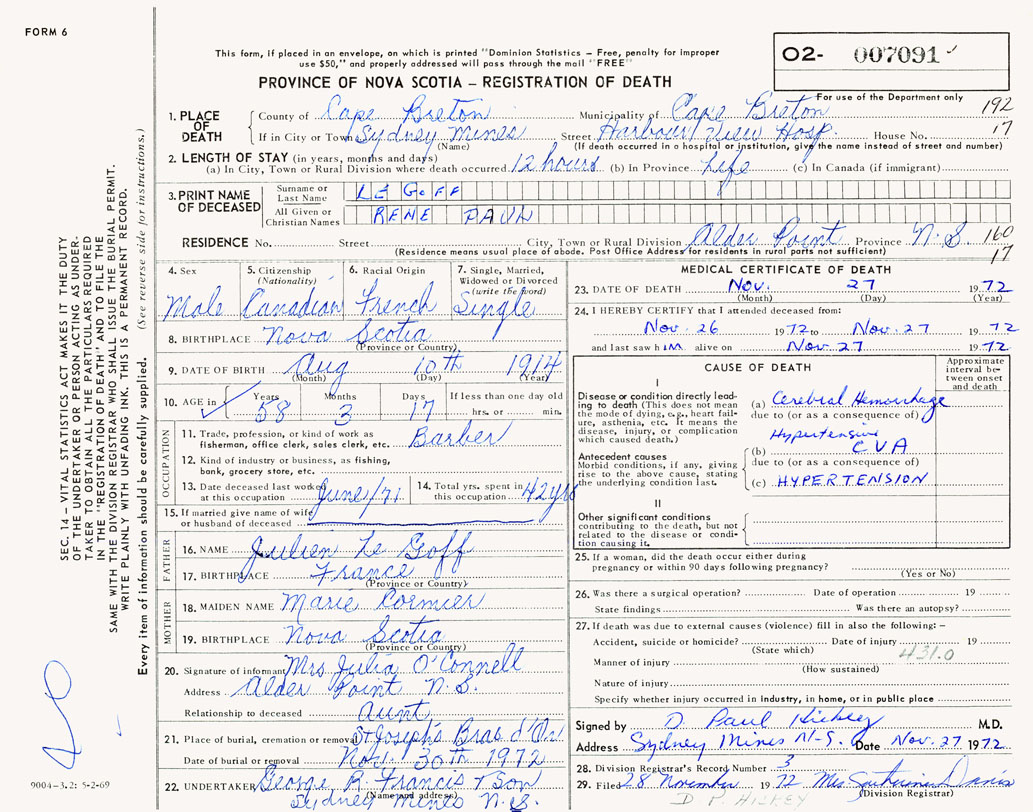 FORM 6
This form, if placed in an envelope, on which is printed "Dominion Statistics – Free, penalty for improper
use $50," and properly addressed will pass through the mail "FREE"
O2- 007091
PROVINCE OF NOVA SCOTIA – REGISTRATION OF DEATH
For use of the Department only
1. PLACE OF DEATH
County of Cape Breton Municipality of Cape Breton 192
If in City or Town Sydney Mines Street Harbour View Hosp. House No. 17
(Name) (If death occurred in a hospital or institution, give the name instead of street and number)
2. LENGTH OF STAY (in years, months and days)
(a) In City, Town or Rural Division where death occurred 12 hours (b) In Province Life (c) In Canada (if immigrant)
3. PRINT NAME OF DECEASED
Surname or Last Name LE GOFF
All Given or Christian Names RENE PAUL
RESIDENCE No. Street City, Town or Rural Division Alder Point Province N.S. 160
(Residence means usual place of abode. Post Office Address for residents in rural parts not sufficient) 17
4. Sex Male
5. Citizenship (Nationality) Canadian
6. Racial Origin French
7. Single, Married, Widowed or Divorced (write the word) Single
8. BIRTHPLACE Nova Scotia
(Province or Country)
9. DATE OF BIRTH Aug 10th 1914
(Month) (Day) (Year)
10. AGE in Years 58 Months 3 Days 17 If less than one day old
hrs. or min.
OCCUPATION
11. Trade, profession, or kind of work as
fisherman, office clerk, sales clerk, etc. Barber
12. Kind of industry or business, as fishing,
bank, grocery store, etc.
13. Date deceased last worked
at this occupation June/71
14. Total yrs. spent in
this occupation 42 yrs
15. If married give name of wife
or husband of deceased
FATHER
16. NAME Julien Le Goff
17. BIRTHPLACE France
(Province or Country)
MOTHER
18. MAIDEN NAME Marie Cormier
19. BIRTHPLACE Nova Scotia
(Province or Country)
20. Signature of informant Mrs Julia O'Connell
Address Alder Point N.S.
Relationship to deceased Aunt
21. Place of burial, cremation or removal St Joseph's Bras d'Or
Date of burial or removal Nov. 30th 1972
22. UNDERTAKER George R. Francis & Son
(Name and address)
Sydney Mines N.S.
MEDICAL CERTIFICATE OF DEATH
23. DATE OF DEATH Nov. 27 1972
(Month) (Day) (Year)
24. I HEREBY CERTIFY that I attended deceased from:
Nov. 26 1972 to Nov. 27 1972
and last saw him alive on Nov 27 1972
CAUSE OF DEATH
Approximate interval between onset and death
I
Disease or condition directly leading to death (This does not mean
the mode of dying, e.g., heart failure, asthenia, etc. It means the
disease, injury, or complication
which caused death.)
(a) Cerebral Hemorrhage
due to (or as a consequence of)
Antecedent causes
Morbid conditions, if any, giving
rise to the above cause, stating
the underlying condition last.
Hypertensive
(b) CVA
due to (or as a consequence of)
(c) HYPERTENSION
II
Other significant conditions
contributing to the death, but not
related to the disease or condition causing it.
25. If a woman, did the death occur either during
pregnancy or within 90 days following pregnancy?
(Yes or No)
26. Was there a surgical operation? Date of operation 19
State findings Was there an autopsy?
27. If death was due to external causes (violence) fill in also the following: –
Accident, suicide or homicide? Date of injury 19
(State which) 431.0
Manner of injury
(How sustained)
Nature of injury
Specify whether injury occurred in Industry, in home, or in public place
Signed by D. Paul Hickey M.D.
Address Sydney Mines N-S. Date Nov. 27 1972
28. Division Registrar's Record Number 3
29. Filed 28 November 1972 Mrs Davis
(Division Registrar)
D P. HICKEY
SEC. 14 – VITAL STATISTICS ACT MAKES IT THE DUTY
OF THE UNDERTAKER OR PERSON ACTING AS UNDER-
TAKER TO OBTAIN ALL THE PARTICULARS REQUIRED
IN THE "REGISTRATION OF DEATH" AND TO FILE THE
SAME WITH THE DIVISION REGISTRAR WHO SHALL ISSUE THE BURIAL PERMIT.
WRITE PLAINLY WITH UNFADING INK. THIS IS A PERMANENT RECORD.
Every item of information should be carefully supplied. (See reverse side for instructions.)
9004–3.2: 5-2-69